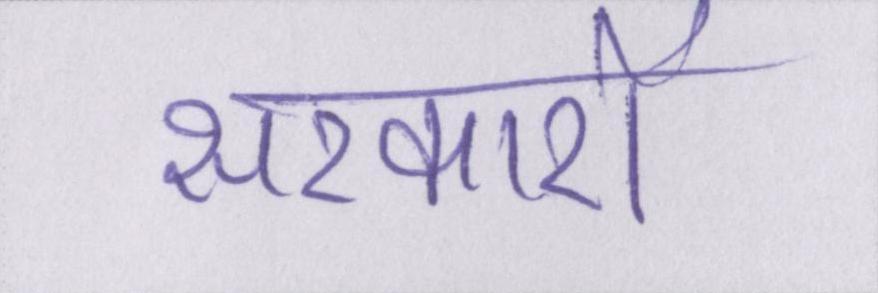 सरकारों